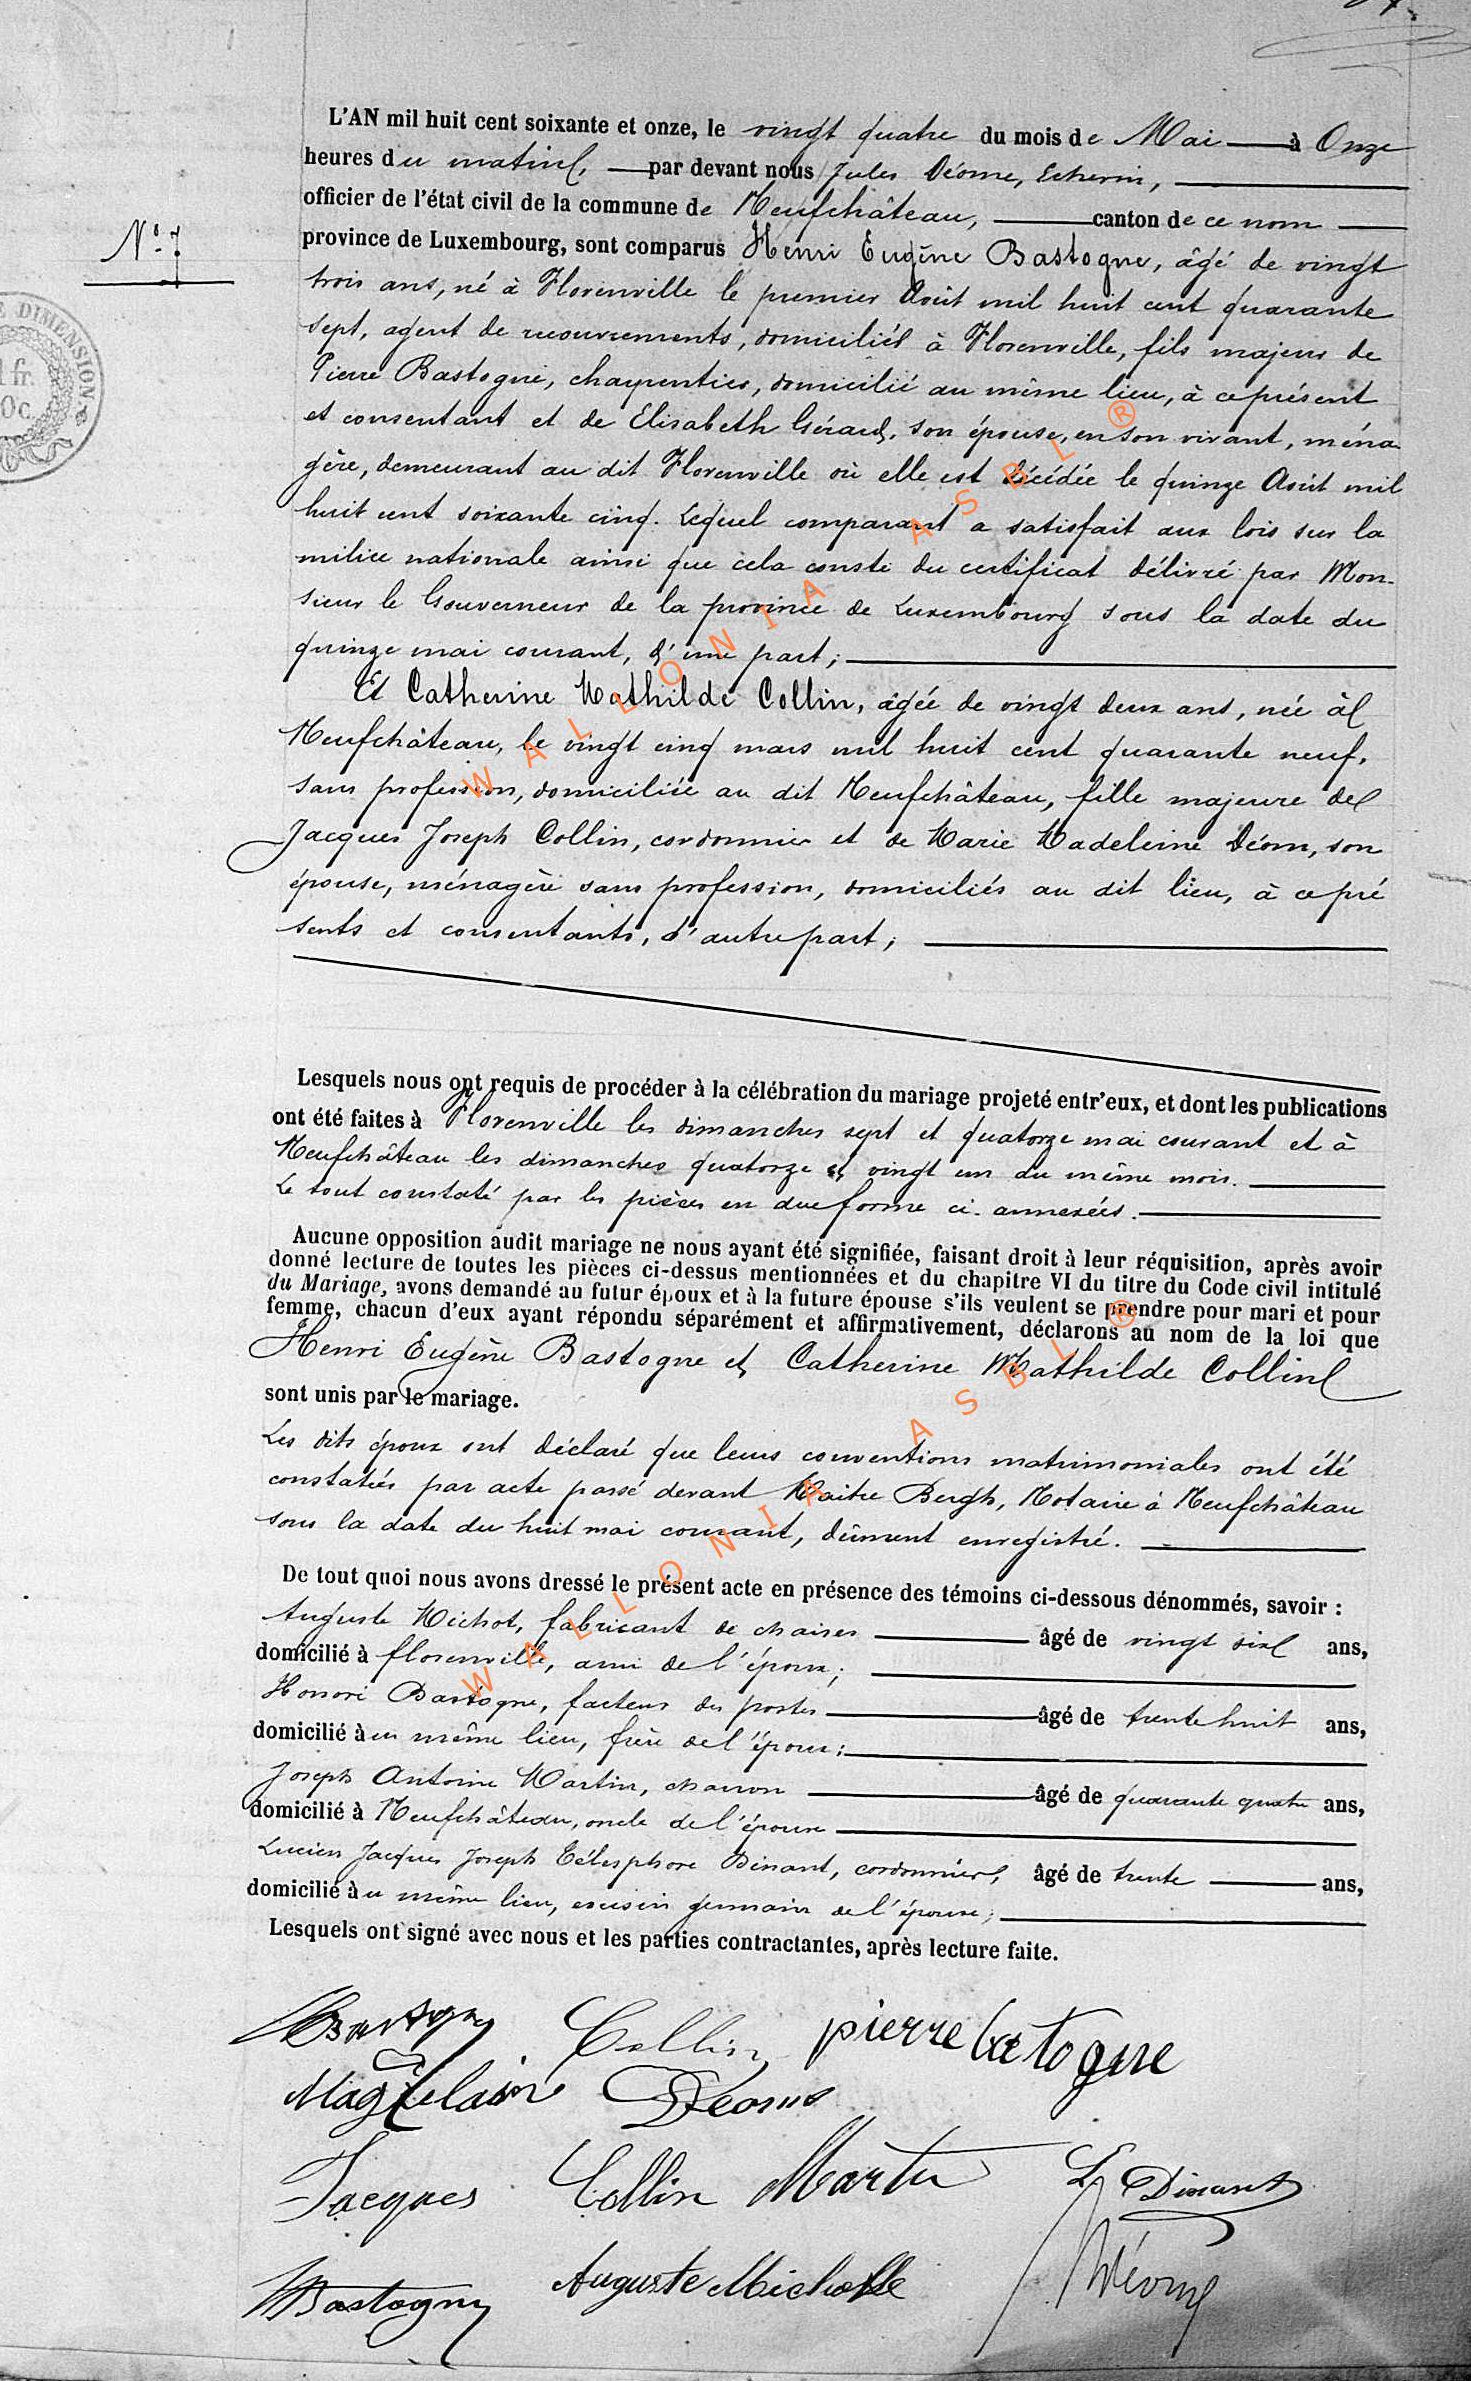 L'AN mil huit cent soixante et onze, le vingt quatre du mois de Mai à Onze
heures du matin, par devant nous Jules Déome, Echevin,
officier de l'état civil de la commune de Neufchâteau, canton de ce nom
N° 7
province de Luxembourg, sont comparus Henri Eugène Bastogne, âgé de vingt
trois ans, né à Florenville le premier Août mil huit cent quarante
sept, agent de recouvrements, domicilié à Florenville, fils majeur de
Pierre Bastogne, charpentier, domicilié au même lieu, à ce présent
et consentant et de Elisabeth Gérard, son épouse, en son vivant, ména
gère, demeurant au dit Florenville où elle est décédée le quinze Août mil
huit cent soixante cinq. Lequel comparant a satisfait aux lois sur la
milice nationale ainsi que cela conste du certificat délivré par Mon-
sieur le Gouverneur de la province de Luxembourg sous la date du
quinze mai courant, d'une part;
Et Catherine Mathilde Collin, âgée de vingt deux ans, née à
Neufchâteau, le vingt cinq mars mil huit cent quarante neuf,
sans profession, domiciliée au dit Neufchâteau, fille majeure de
Jacques Joseph Collin, cordonnier et de Marie Madeleine Déom, son
épouse, ménagère sans profession, domiciliés au dit lieu, à ce pré
sents et consentants, d'autre part;
Lesquels nous ont requis de procéder à la célébration du mariage projeté entr'eux, et dont les publications
ont été faites à Florenville les dimanches sept et quatorze mai courant et à
Neufchâteau les dimanches quatorze et vingt un du même mois.
Le tout constaté par les pièces en due forme ci-annexées.
Aucune opposition audit mariage ne nous ayant été signifiée, faisant droit à leur réquisition, après avoir
donné lecture de toutes les pièces ci-dessus mentionnées et du chapitre VI du titre du Code civil intitulé
du Mariage, avons demandé au futur époux et à la future épouse s'ils veulent se prendre pour mari et pour
femme, chacun d'eux ayant répondu séparément et affirmativement, déclarons au nom de la loi que
Henri Eugène Bastogne et Catherine Mathilde Collin
sont unis par le mariage.
Les dits époux ont déclaré que leurs conventions matrimoniales ont été
constatées par acte passé devant Maître Bergh, Notaire à Neufchâteau
sous la date du huit mai courant, dûment enregistré.
De tout quoi nous avons dressé le présent acte en présence des témoins ci-dessous dénommés, savoir :
Auguste Michot, fabricant de chaises âgé de vingt six ans,
domicilié à florenville, ami de l'époux;
Honoré Bastogne, facteur des postes âgé de trente huit ans,
domicilié au même lieu, frère de l'époux;
Joseph Antoine Martin, charron âgé de quarante quatre ans,
domicilié à Neufchâteau, oncle de l'épouse
Lucien Jacques Joseph Télesphore Dinant, cordonnier, âgé de trente ans,
domicilié au même lieu, cousin germain de l'épouse;
Lesquels ont signé avec nous et les parties contractantes, après lecture faite.
Bastogne Collin pierre batogne
Magdelaine Deome
Jacques Collin Martin L Dinant
Bastogne Auguste Michotte Déome
DIMENSION
1 fr.
WALLONIA ASBL ®
WALLONIA ASBL ®